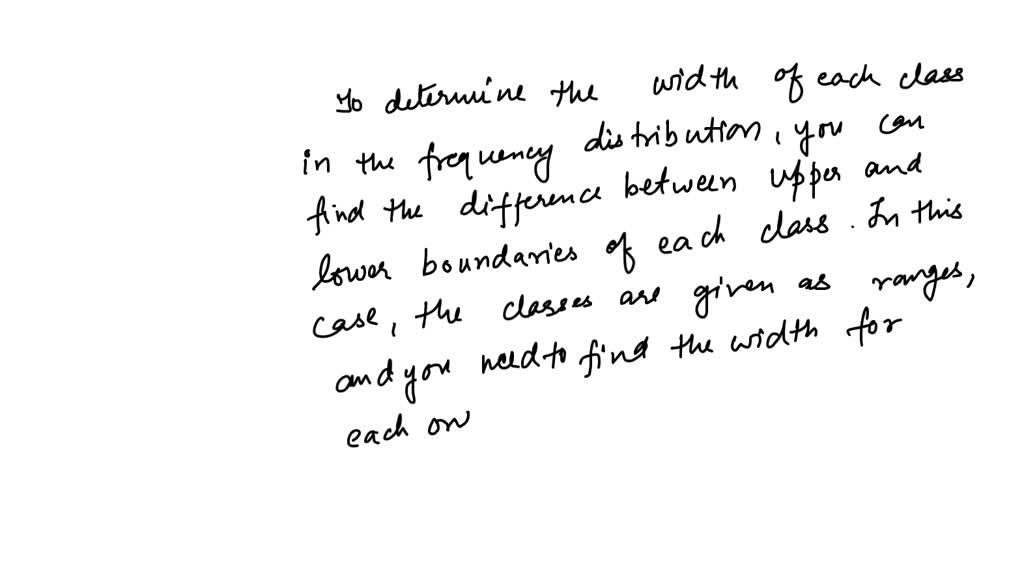 To determine the width of each class
in the frequency distribution, you can
find the difference between upper and
lower boundaries of each class. In this
case, the classes are given as ranges,
and you need to find the width for
each on